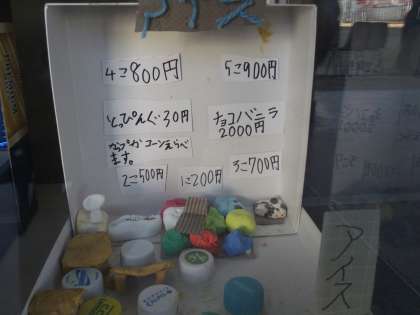 アイス
4こ800円
5こ900円
とっぴんぐ30円
チョコバニラ
2000円
かっぷか コーンえらべ
ます。
2こ500円
1こ200円
3こ700円
アイス